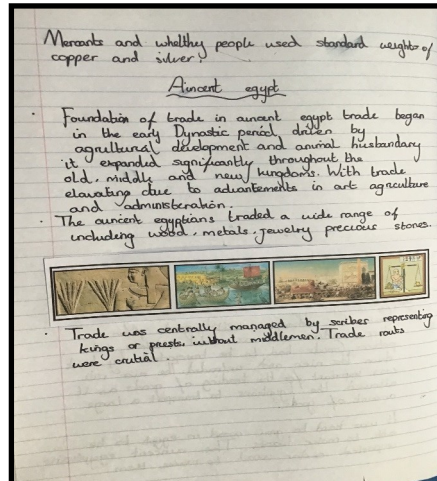 Mercants and whelthy people used standard weights of
copper and silver.
Aincent egypt
· Foundation of trade in auncent egypt trade began
in the early Dynastic period, driven by
agrultural development and animal husbandary
it expanded significantly throughout the
old, middle and new kungdoms. With trade
elavating due to advantements in art agraculture
and administeration.
· The auncient egyptians traded a wide range of
including wood, metals, jewelry precious stones.
· Trade was centrally managed by scribes representing
kings or prests, without middlemen. Trade routs
were crutial.